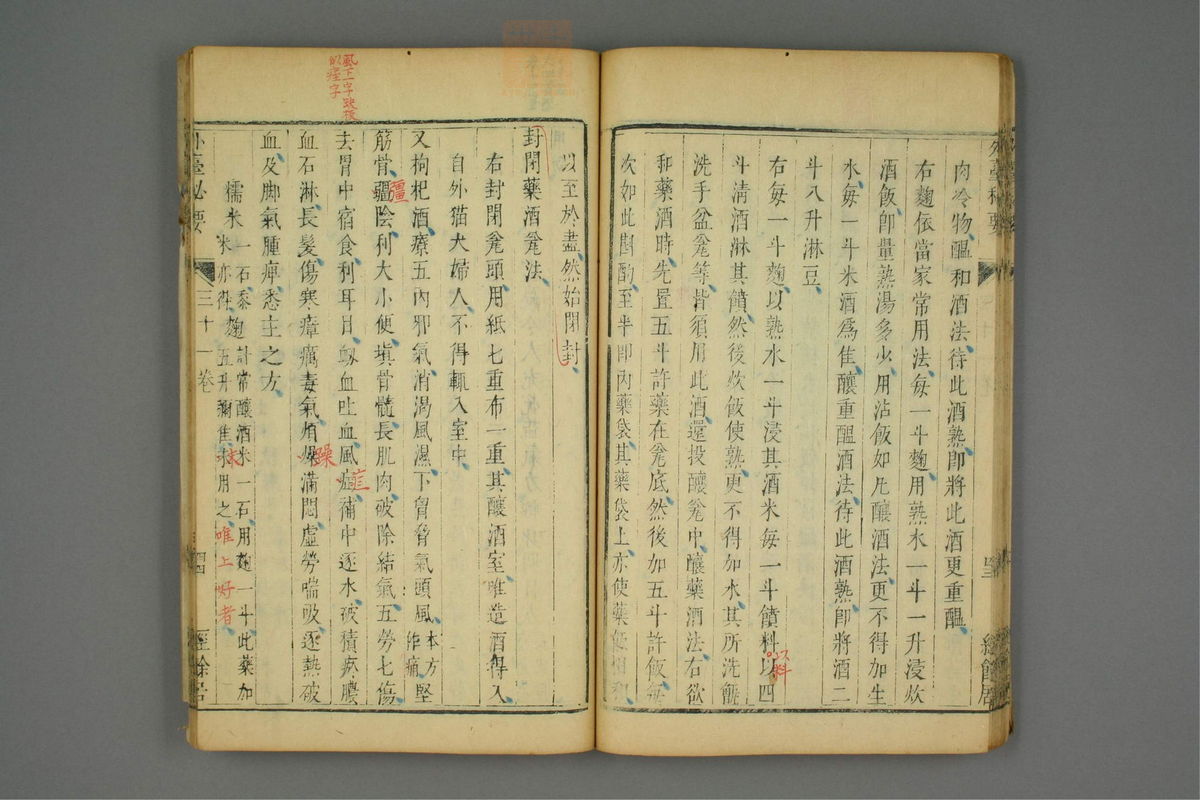 肉冷物醞和酒法待此酒熟即將此酒更重醞
右麴依當家常用法每一斗麴用熟水一斗一升浸炊
酒飯即量熱湯多少用沾飯如凡釀酒法更不得加生
水每一斗米酒爲隹釀重醞酒法待此酒熟即將酒二
斗八升淋豆
右每一斗麴以熟水一斗浸其酒米每一斗饙料以四
斗淸酒淋其饙然後炊飯使熟更不得加水其所洗
洗手盆瓮等皆須用此酒還投釀瓮中釀藥酒法右欲
和藥酒時先置五斗許藥在瓮底然後加五斗許飯每
次如此斟酌至半即內藥袋其藥袋上亦使藥飯相和
以至於盡然始閉封
封閉藥酒瓮法
右封閉瓮頭用紙七重布一重其釀酒室唯造酒得入
自外猫犬婦人不得輒入室中
又枸杞酒療五內邪氣消渴風濕下胷脅氣頭風本方作痛堅
筋骨彊陰利大小便塡骨髓長肌肉破除結氣五勞七傷
去胃中宿食利耳目鼻血吐血風癌補中逐水破積瘀膿
血石淋長髮傷寒瘴癘毒氣煩燥滿悶虛勞喘吸逐熱破
血及脚氣腫痺悉主之方
糯米一石黍米亦得 麴計常釀酒米一石用麴一斗此藥加五升彌隹末用之
外臺必要 三十一卷 四四 經餘居
外臺秘要 四三 經餘居
風下一字改板似瘂字
彊
燥
末
唯上好者
料